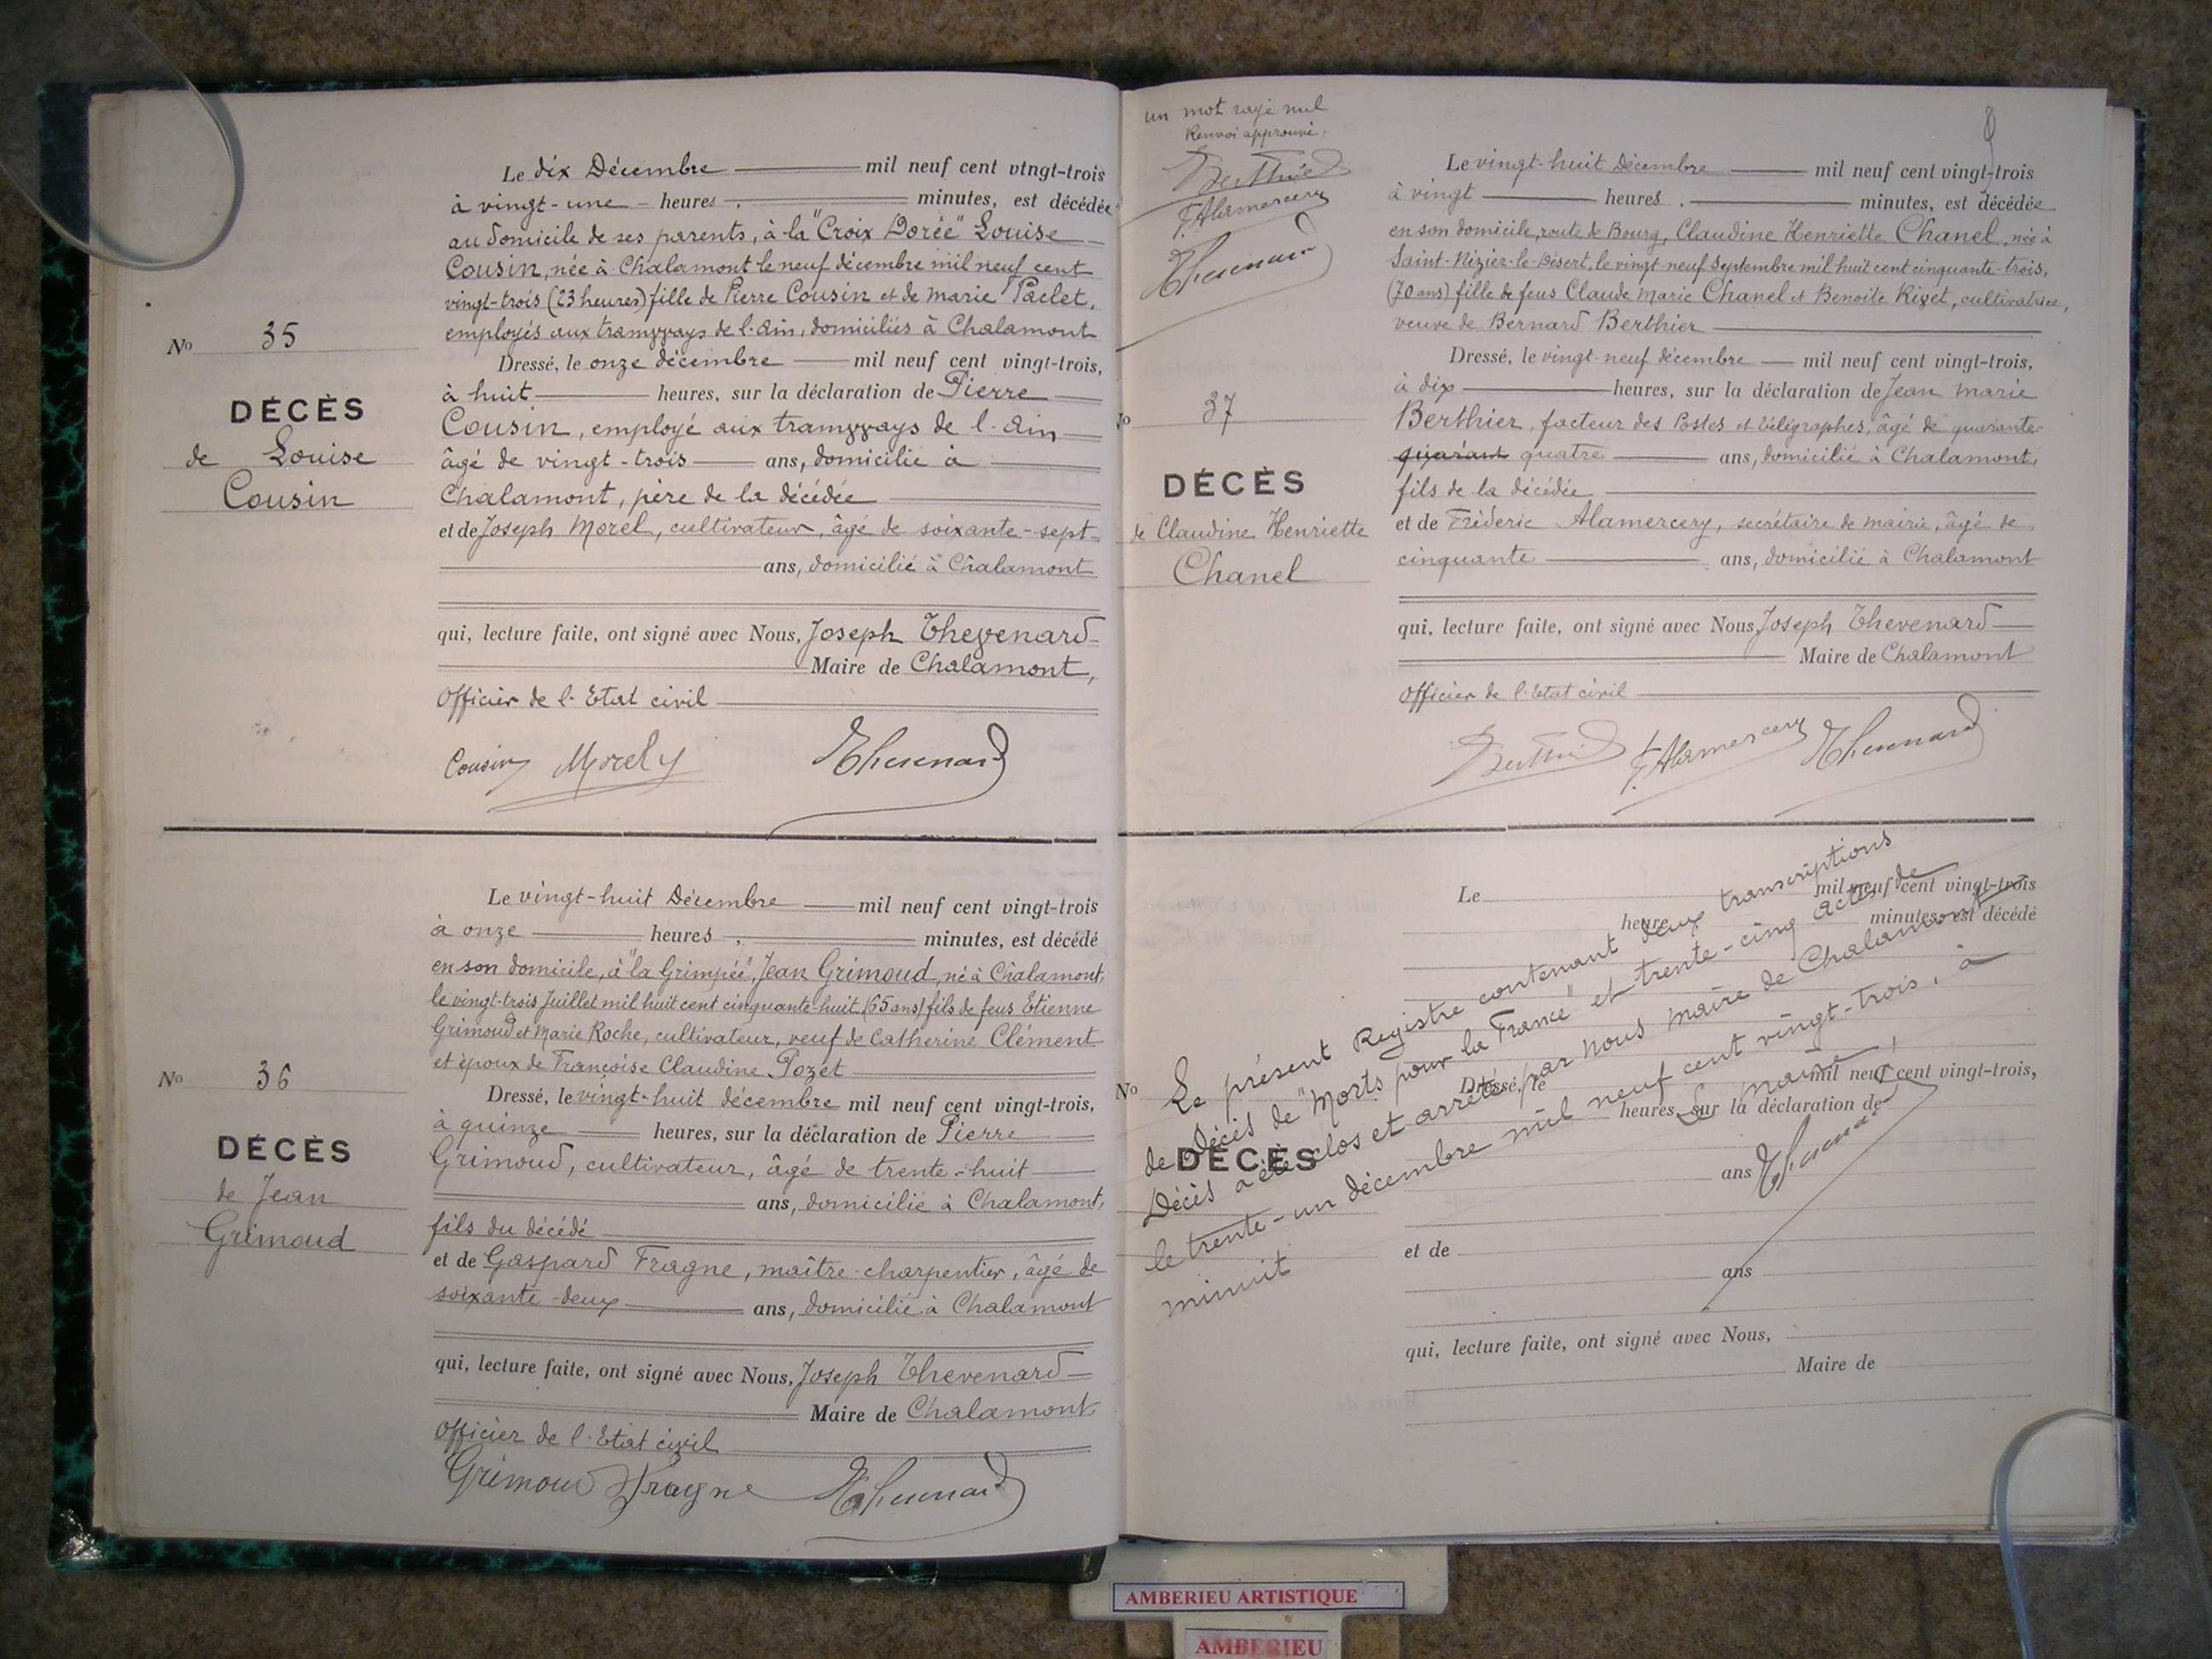 Le dix Décembre mil neuf cent vingt-trois
à vingt-une heures minutes, est décédée
au domicile de ses parents, à la "Croix Dorée" Louise
Cousin, née à Chalamont le neuf décembre mil neuf cent
vingt-trois (23 heures) fille de Pierre Cousin et de Marie Paclet,
employés aux tramways de l'Ain, domiciliés à Chalamont
No 35
DÉCÈS
de Louise
Cousin
Dressé, le onze décembre mil neuf cent vingt-trois,
à huit heures, sur la déclaration de Pierre
Cousin, employé aux tramways de l'Ain
âgé de vingt-trois ans, domicilié à
Chalamont, père de la décédée
et de Joseph Morel, cultivateur, âgé de soixante-sept
ans, domicilié à Châlamont
qui, lecture faite, ont signé avec Nous, Joseph Thevenard
Maire de Chalamont,
Officier de l'Etat civil
Cousin Morel Thevenard
Le vingt-huit Décembre mil neuf cent vingt-trois
à onze heures minutes, est décédé
en son domicile, à "la Grimpée", Jean Grimoud, né à Chalamont,
le vingt-trois Juillet mil huit cent cinquante-huit (65 ans) fils de feus Etienne
Grimoud et Marie Roche, cultivateur, veuf de Catherine Clément
et époux de Françoise Claudine Pozet
No 36
DÉCÈS
de Jean
Grimoud
Dressé, le vingt-huit décembre mil neuf cent vingt-trois,
à quinze heures, sur la déclaration de Pierre
Grimoud, cultivateur, âgé de trente-huit
ans, domicilié à Chalamont,
fils du décédé
et de Gaspard Fragne, maître-charpentier, âgé de
soixante-deux ans, domicilié à Chalamont
qui, lecture faite, ont signé avec Nous, Joseph Thevenard
Maire de Chalamont
Officier de l'Etat civil
Grimoud Fragne Thevenard
un mot rayé nul
Renvoi approuvé.
Berthier
F. Alamercery
Thevenard
Le vingt-huit Décembre mil neuf cent vingt-trois
à vingt heures minutes, est décédée
en son domicile, route de Bourg, Claudine Henriette Chanel, née à
Saint-Nizier-le-Désert, le vingt-neuf Septembre mil huit cent cinquante-trois,
(70 ans) fille de feus Claude Marie Chanel et Benoîte Rizet, cultivatrice,
veuve de Bernard Berthier
No 37
DÉCÈS
de Claudine Henriette
Chanel
Dressé, le vingt-neuf décembre mil neuf cent vingt-trois,
à dix heures, sur la déclaration de Jean Marie
Berthier, facteur des Postes et Télégraphes, âgé de quarante-
quarant quatre ans, domicilié à Chalamont,
fils de la décédée
et de Fréderic Alamercery, secrétaire de mairie, âgé de
cinquante ans, domicilié à Chalamont
qui, lecture faite, ont signé avec Nous, Joseph Thevenard
Maire de Chalamont
Officier de l'Etat civil
Berthier F. Alamercery Thevenard
Le mil neuf cent vingt-trois
heures minutes, est décédé
No
DÉCÈS
Dressé, le mil neuf cent vingt-trois,
heures, sur la déclaration de
ans
et de
ans
qui, lecture faite, ont signé avec Nous,
Maire de
Le présent Registre contenant deux transcriptions
de Décès de "Morts pour la France" et trente-cinq actes de
Décès a été clos et arrêté par nous maire de Chalamont
le trente-un décembre mil neuf cent vingt-trois, à
minuit
Le maire,
Thevenard
AMBERIEU ARTISTIQUE
AMBERIEU